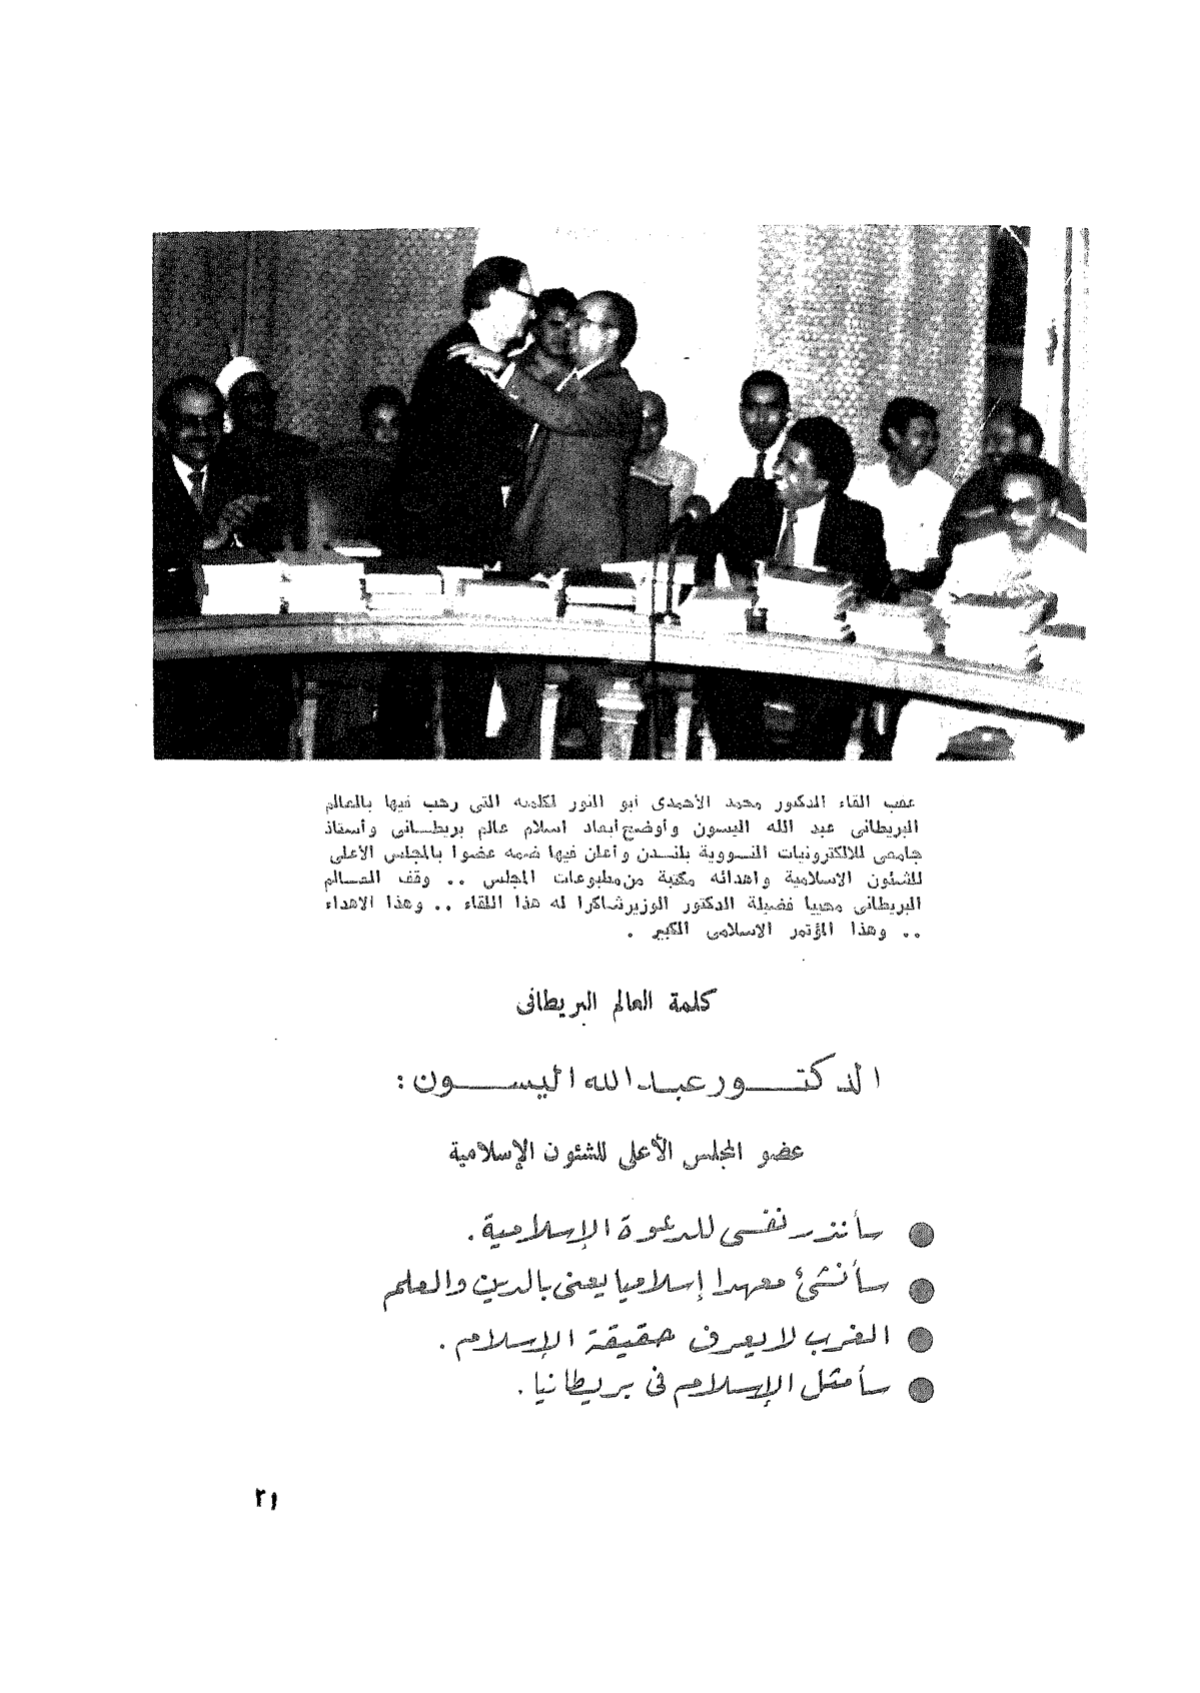 عقب القاء الدكتور محمد الأحمدى أبو النور لكلمته التى رحب فيها بالعالم
البريطانى عبد الله اليسون وأوضح أبعاد اسلام عالم بريطانى وأستاذ
جامعى للالكترونيات النووية بلندن وأعلن فيها ضمه عضوا بالمجلس الأعلى
للشئون الاسلامية واهدائه مكتبة من مطبوعات المجلس .. وقف العالم
البريطانى محييا فضيلة الدكتور الوزير شاكرا له هذا اللقاء .. وهذا الاهداء
.. وهذا المؤتمر الاسلامى الكبير .
كلمة العالم البريطانى
الدكتور عبد الله اليسون :
عضو المجلس الأعلى للشئون الإسلامية
● سأنذر نفسى للدعوة الإسلامية .
● سأنشئ معهدا إسلاميا يعنى بالدين والعلم
● الغرب لا يعرف حقيقة الإسلام .
● سأمثل الإسلام فى بريطانيا .
٢١